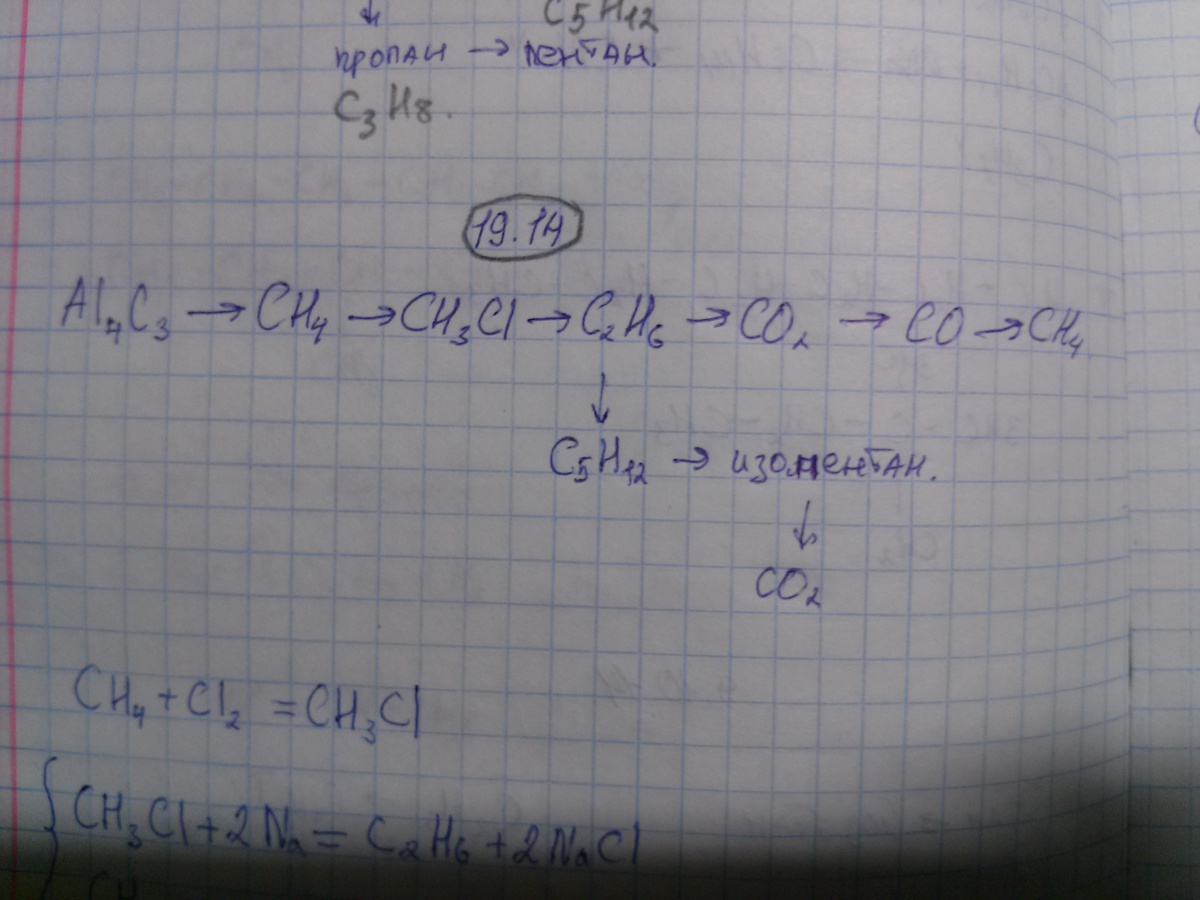 C₅H₁₂
↓
пропан → пентан.
C₃H₈.
19.14
Al₄C₃ → CH₄ → CH₃Cl → C₂H₆ → CO₂ → CO → CH₄
↓
C₅H₁₂ → изопентан.
↓
CO₂
CH₄ + Cl₂ = CH₃Cl
CH₃Cl + 2Na = C₂H₆ + 2NaCl
CH